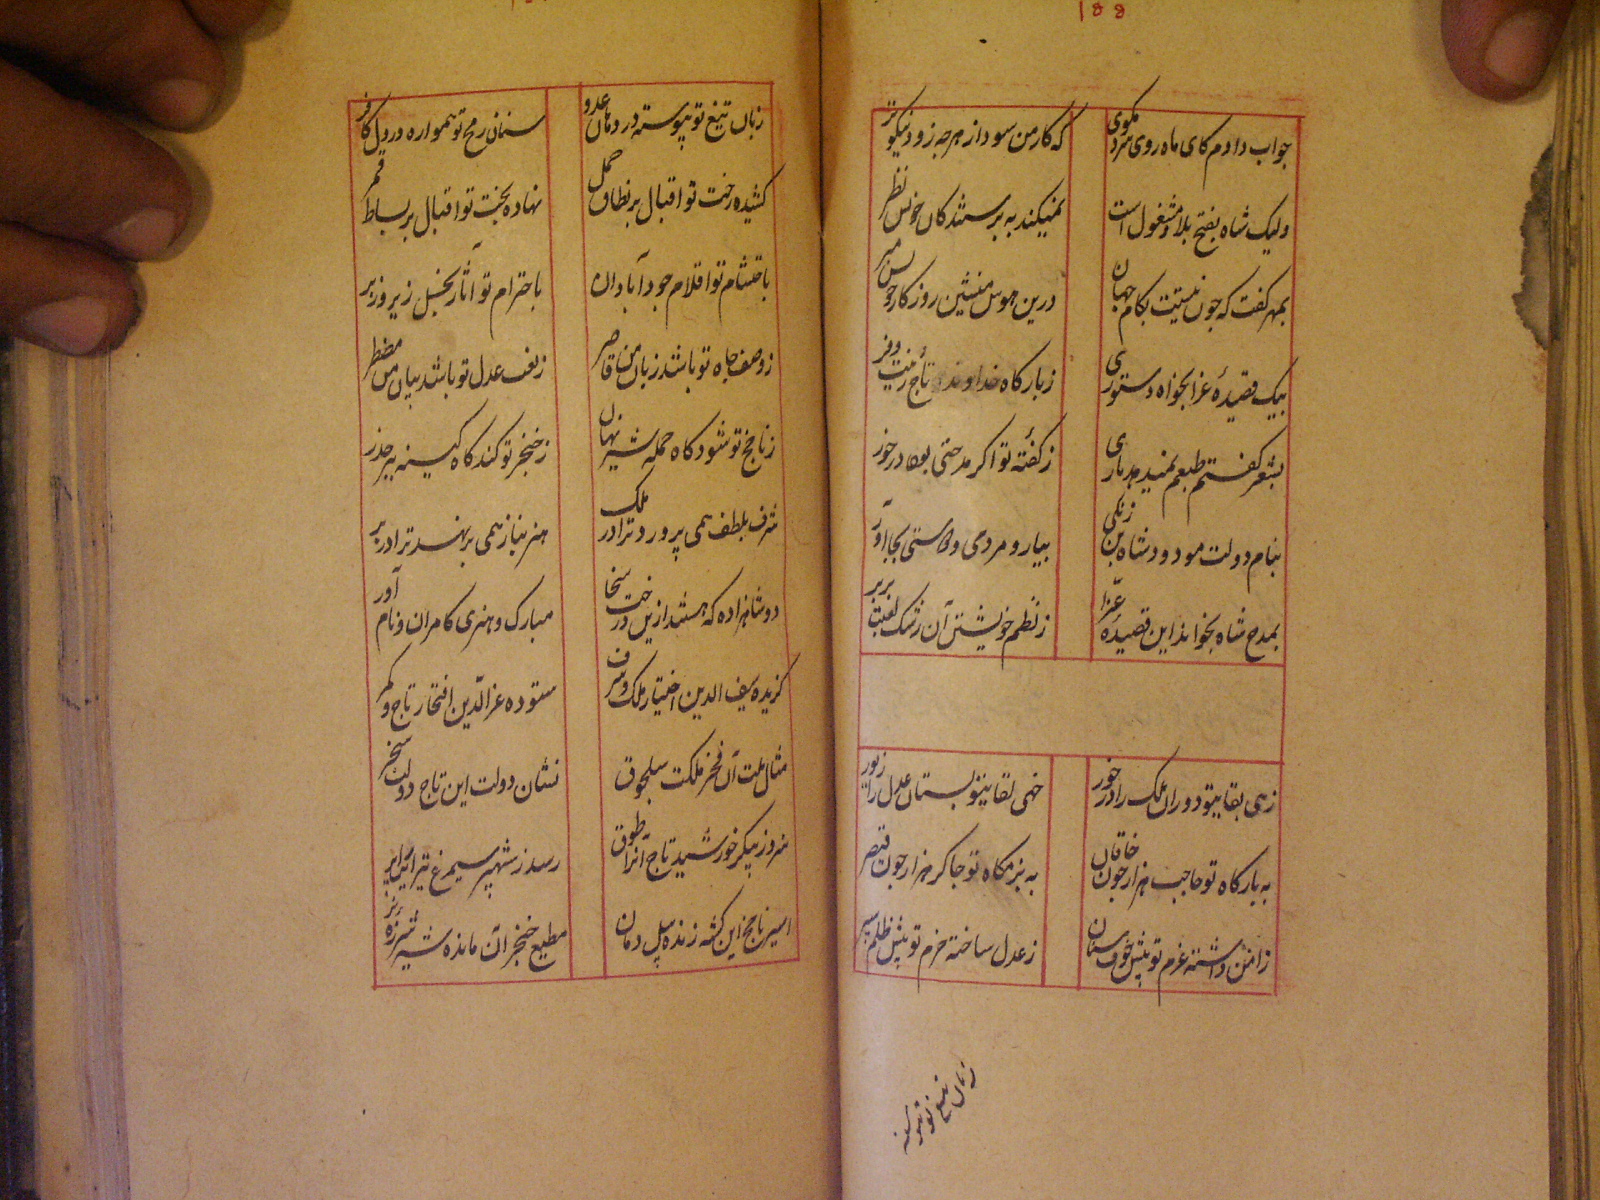 ۱۵۵
جواب دادم کای ماه روی مرد مکوی که کار من سود از هرچه زود نیکوتر
ولیک شاه بفتح بلاد مشغول است نمیکند به پرستندکان خویش نظر
بمهر کفت که چون نیستیت بکام جهان درین هوس منشین روزکار خویش مبر
بیک قصیدهٔ غرا بخواه دستوری زبارکاه خداوند تاج زینت و فر
بشعر کفتم طبعم نمیدهد یاری زکفتهٔ تو اکر مدحتی بود درخور
بنام دولت مودود شاه بن زنکی بیار و مردمی و راستی بجا آور
بمدح شاه بخواند این قصیدهٔ غرّا زنظم خویشتن آن رشک لعبت بربر
زهی بقای تو دوران ملک را درخور خهی لقای تو بستان عدل را زیور
به بارکاه تو حاجب هزار چون خاقان به بزمکاه تو چاکر هزار چون قیصر
زامن داشته عزم تو پیش خوف سنان زعدل ساخته حزم تو پیش ظلم سپر
زبان تیغ تو پیوسته
زبان تیغ تو پیوسته در دهان عدو سنان رمح تو همواره در دل کافر
کشیده رخت تو اقبال بر نطاق حمل نهاده بخت تو اقبال بر بساط قمر
باحتشام تو اقلام جود آبادان باحترام تو آثار بخل زیر و زبر
زوصف جاه تو باشد زبان من قاصر زنعت عدل تو باشد بیان من مضطر
زناچخ تو شود کاه حمله شیر نهان زخنجر تو کند کاه کینه ببر حذر
شرف بلطف همی پرورد ترا در ملک هنر بناز همی پرورد ترا در بر
دو شاهزاده که هستند ازین درخت سخا مبارک و هنری کامران و نام آور
کزیده سیف الدین اختیار ملک و شرف ستوده عزّ الدّین افتخار تاج و کمر
مثال ملت آن فخر ملکت سلجوق نشان دولت این تاج دولت سنجر
سزد زپیکر خورشید تاج آنرا طوق رسد زشهپر سیمرغ تیر این را پر
اسیر ناچخ این کشته زنده پیل دمان مطیع خنجر آن مانده شیر شرزه نر